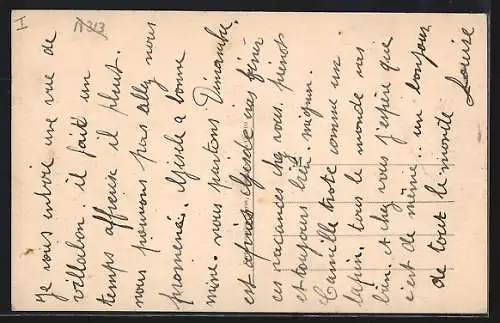 I
7373
Je vous envoie une vue de
villabon il fait un
temps affreuse il pleut.
nous pouvons pas allez nous
promener. Gisèle a bonne
mine. nous partons Dimanche
est après Gisèle vas finir
ces vacances chez vous. pierrot
est toujours bien mignon.
Camille trote comme un
lapin. tous le monde vas
bien. et chez vous j'espère que
c'est de même. un bonjour
de tout le monde
Louise